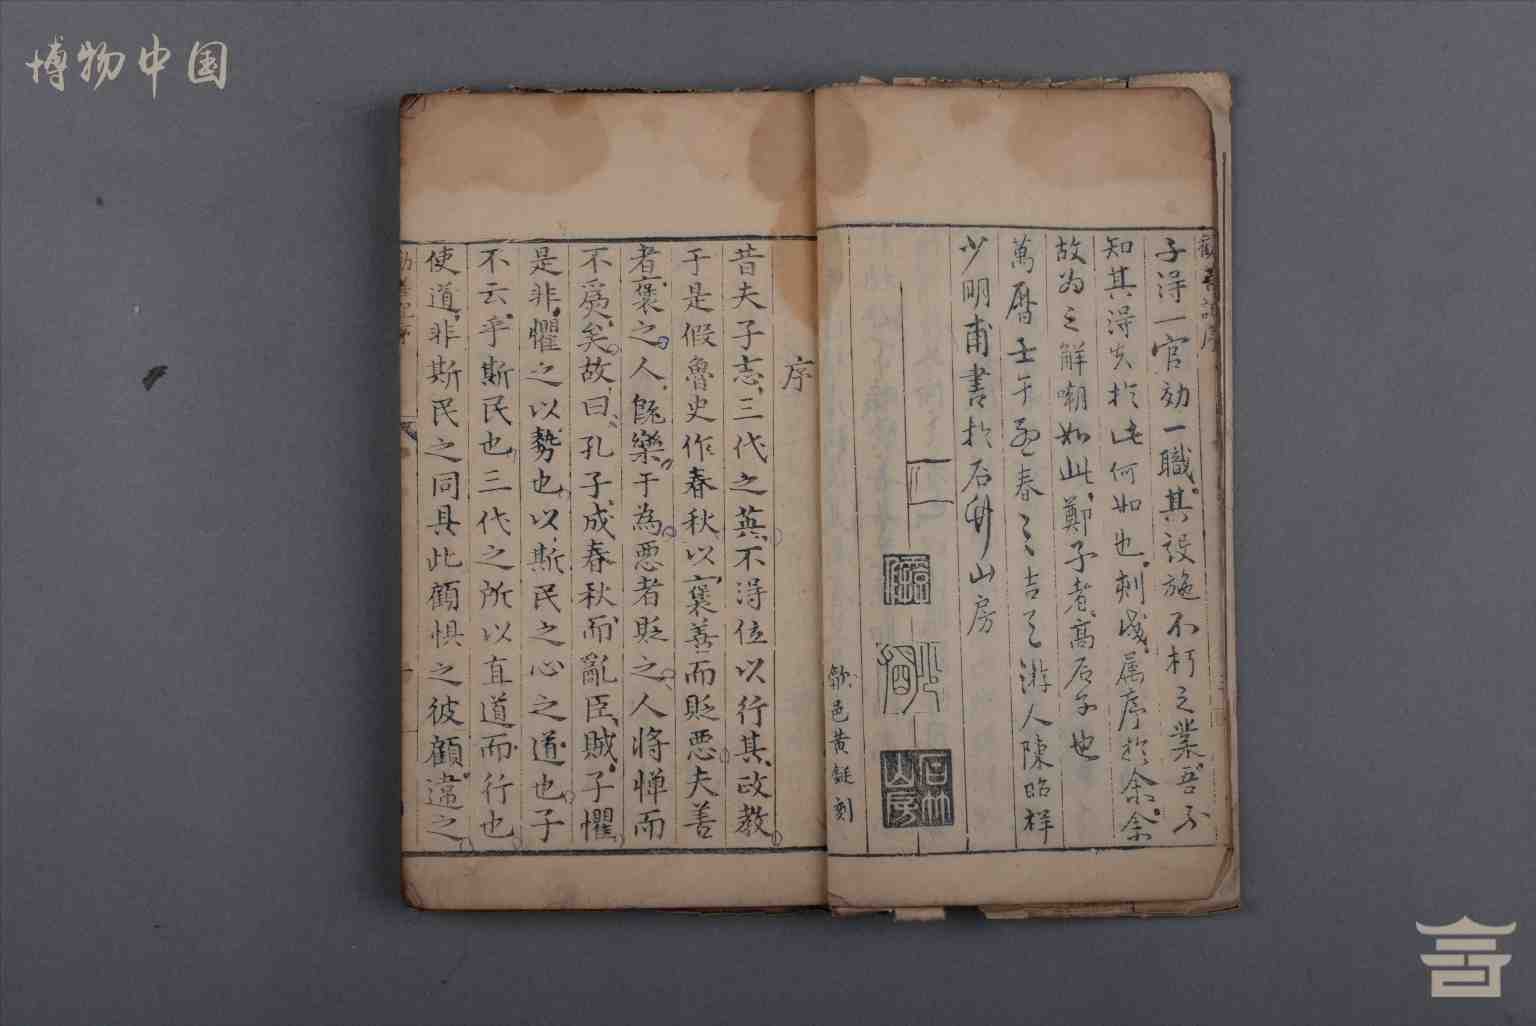 博物中国
子淂一官効一職其設施不朽之業吾不
知其淂失扵此何如也刻成属序扵余余
故为之解嘲如此鄭子者高石子也
萬曆壬午孟春之吉天游人陳昭祥
少明甫書扵石竹山房
石竹山房
歙邑黄鋌刻
序
昔夫子志三代之英不淂位以行其政教
于是假魯史作春秋以褒善而貶惡夫善
者褒之人既樂于為惡者貶之人將惮而
不爲矣故曰孔子成春秋而亂臣賊子懼
是非懼之以勢也以斯民之心之道也子
不云乎斯民也三代之所以直道而行也
使道非斯民之同具此顧惧之彼顧違之